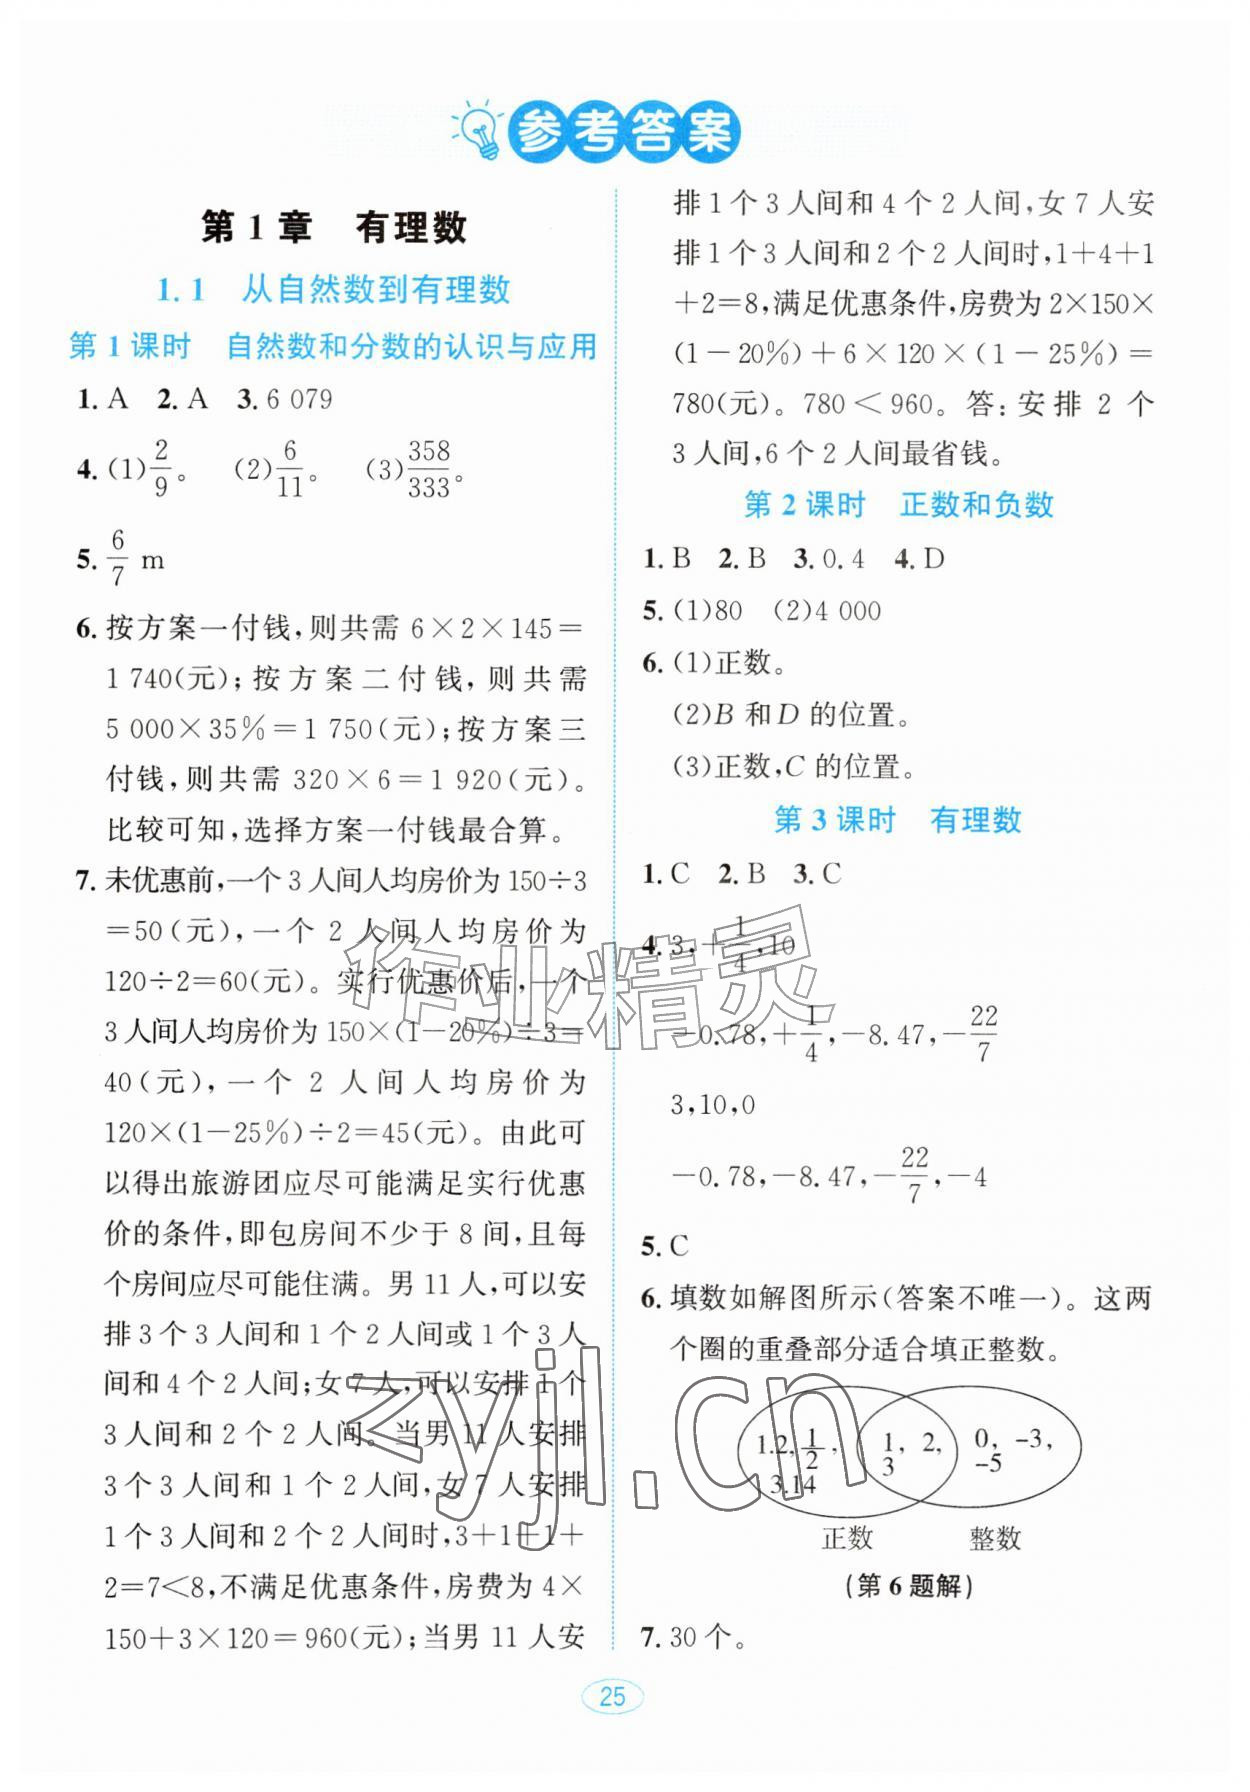 参考答案
第1章 有理数
1.1 从自然数到有理数
第1课时 自然数和分数的认识与应用
1. A 2. A 3. 6 079
4. (1)2/9。 (2)6/11。 (3)358/333。
5. 6/7 m
6. 按方案一付钱,则共需 6×2×145=
1 740(元);按方案二付钱,则共需
5 000×35%=1 750(元);按方案三
付钱,则共需 320×6=1 920(元)。
比较可知,选择方案一付钱最合算。
7. 未优惠前,一个3人间人均房价为150÷3
=50(元),一个 2 人间人均房价为
120÷2=60(元)。实行优惠价后,一个
3人间人均房价为150×(1-20%)÷3=
40(元),一个 2 人间人均房价为
120×(1-25%)÷2=45(元)。由此可
以得出旅游团应尽可能满足实行优惠
价的条件,即包房间不少于8间,且每
个房间应尽可能住满。男11人,可以安
排3个3人间和1个2人间或1个3人
间和4个2人间;女7人,可以安排1个
3人间和2个2人间。当男11人安排
3个3人间和1个2人间,女7人安排
1个3人间和2个2人间时,3+1+1+
2=7<8,不满足优惠条件,房费为4×
150+3×120=960(元);当男11人安
排1个3人间和4个2人间,女7人安
排1个3人间和2个2人间时,1+4+1
+2=8,满足优惠条件,房费为2×150×
(1-20%)+6×120×(1-25%)=
780(元)。780<960。答:安排 2 个
3人间,6个2人间最省钱。
第2课时 正数和负数
1. B 2. B 3. 0.4 4. D
5. (1)80 (2)4 000
6. (1)正数。
(2)B和D的位置。
(3)正数,C的位置。
第3课时 有理数
1. C 2. B 3. C
4. 3,+1/4,10
-0.78,+1/4,-8.47,-22/7
3,10,0
-0.78,-8.47,-22/7,-4
5. C
6. 填数如解图所示(答案不唯一)。这两
个圈的重叠部分适合填正整数。
1.2,1/2, 1, 2, 0, -3,
3.14 3 -5
正数 整数
(第6题解)
7. 30个。
25
作业精灵
zyjl.cn